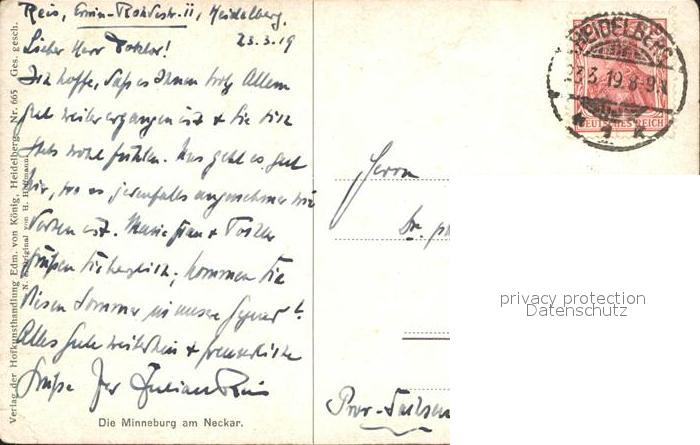 Reis, Erwin-Rohdestr. 11, Heidelberg.
23.3.19
Lieber Herr Doktor!
Ich hoffe, daß es Ihnen trotz Allem
gut weiter ergangen ist & Sie sich
stets wohl fühlen. Uns geht es gut
hier, wo es jedenfalls angenehmer wie
ist. Meine Frau & Tochter
grüßen Sie herzlich; kommen Sie
diesen Sommer in unsere Gegend?
Alles Gute weiterhin & freundliche
Grüße Ihr Julian Reis
Die Minneburg am Neckar.
Verlag der Hofkunsthandlung Edm. von König, Heidelberg. Nr. 665 Ges. gesch.
N. d. Original von H. Hoffmann
HEIDELBERG
23.3.19.8-9V
DEUTSCHES REICH
Herrn
Dr. ph
Prov-Sachsen
privacy protection
Datenschutz